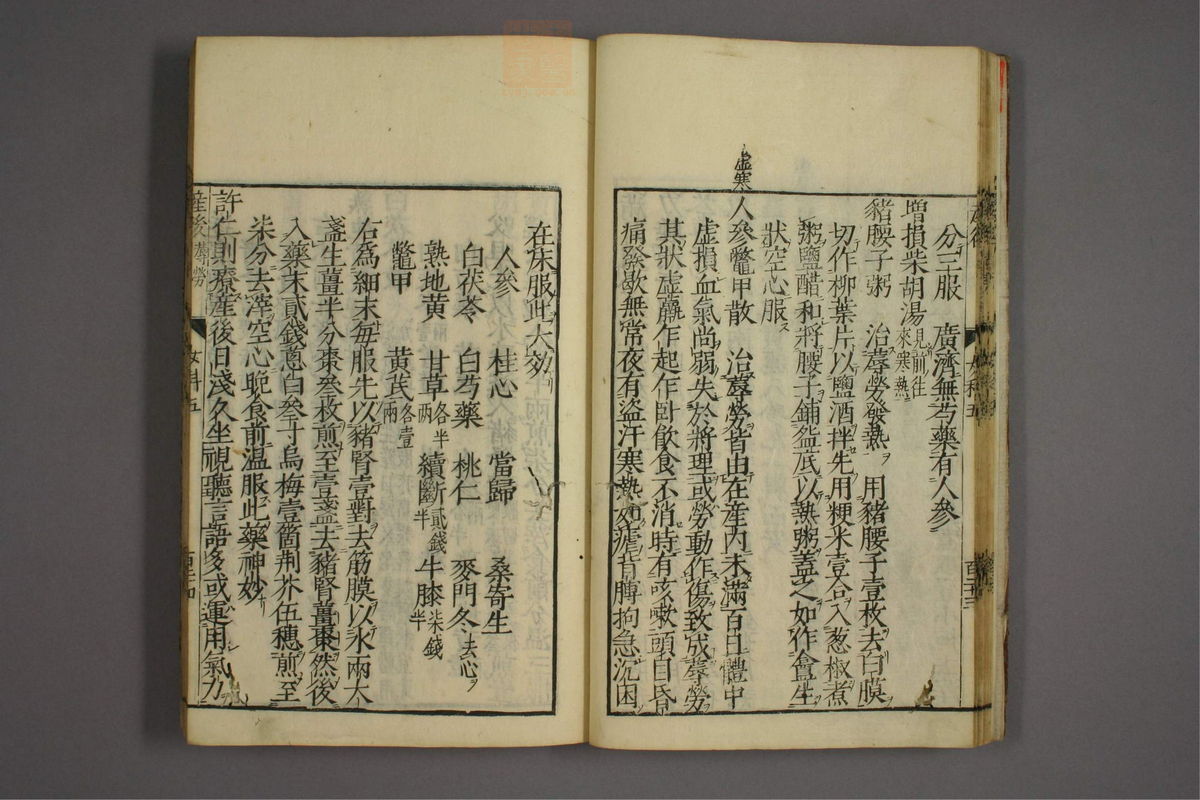 分三服　廣濟無芍藥有人參
增損柴胡湯見前往來寒熱
豬腰子粥　治蓐勞發熱　用豬腰子壹枚去白膜
切作柳葉片以鹽酒拌先用粳米壹合入葱椒煮
粥鹽醋和將腰子鋪盌底以熱粥蓋之如作盦生
狀空心服
虛寒
人參鼈甲散　治蓐勞皆由在產內未滿百日體中
虛損血氣尚弱失於將理或勞動作傷致成蓐勞
其狀虛羸乍起乍臥飲食不消時有咳嗽頭目昏
痛發歇無常夜有盜汗寒熱如瘧背膊拘急沉困
在床服此大効
人參　桂心　當歸　桑寄生
白茯苓　白芍藥　桃仁　麥門冬去心
熟地黃　甘草各半兩　續斷貳錢半　牛膝柒錢半
鼈甲　黃茋各壹兩
右爲細末每服先以豬腎壹對去筋膜以水兩大
盞生薑半分棗叁枚煎至壹盞去豬腎薑棗然後
入藥末貳錢葱白叁寸烏梅壹箇荆芥伍穗煎至
柒分去滓空心晚食前温服此藥神妙
許仁則療產後日淺久坐視聽言語多或運用氣力
產後　蓐勞　女科五